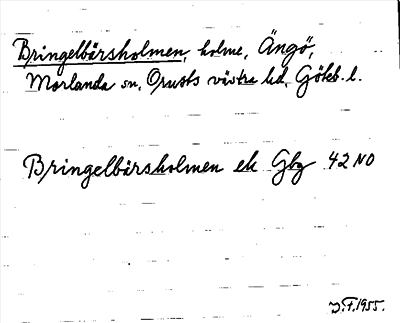 Bringelbärsholmen, holme, Ängö,
Morlanda sn, Orusts västra hd, Göteb. l.
Bringelbärsholmen ek Gbg 42 NO
J.F. 1955.